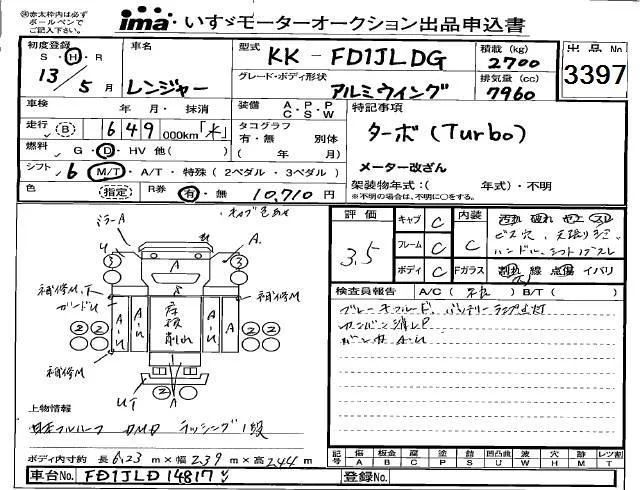 ㊟赤太枠内は必ず
ボールペンで
ご記入下さい。
ima いすゞモーターオークション出品申込書
初度登録 S・H・R 13年 5月
車名 レンジャー
型式 KK-FD1JLDG
グレード・ボディ形状 アルミウイング
積載(kg) 2700
排気量(cc) 7960
出品No 3397
車検 年・月・抹消
装備 A・P・P C・S・W
特記事項
走行 B 649 000km「*」
タコグラフ 有・無 別体 (年 月)
ターボ(Turbo)
メーター改ざん
燃料 G・D・HV 他( )
シフト 6 M/T・A/T・特殊(2ペダル・3ペダル)
架装物年式:( 年式)・不明
※不明の場合は、不明に○をする。
色 (指定) R券 有・無 10,710円
ミラーA
A.
評価 3.5
キャブ C
フレーム C
ボディ C
内装 C
Fガラス
汚れ 破れ
ビス穴、天張り
ハンドル、シフト
線 点傷 イバリ
検査員報告 A/C( ) B/T( )
ブレーキフルード、バッテリーランプ点灯
バンパA・U
補修M
補修M
補修M
床板
削れ
A・U
A・U
UT
A
上物情報
日本フルハーフ DMD ラッシング1段
ボディ内寸約 長6.23m×幅2.39m×高2.44m
記号 傷A 板金B 腐C 塗P 部品S 凹凸曲U 波W 穴H 跡M レツ割T
車台No. FD1JLD 14817
登録No.